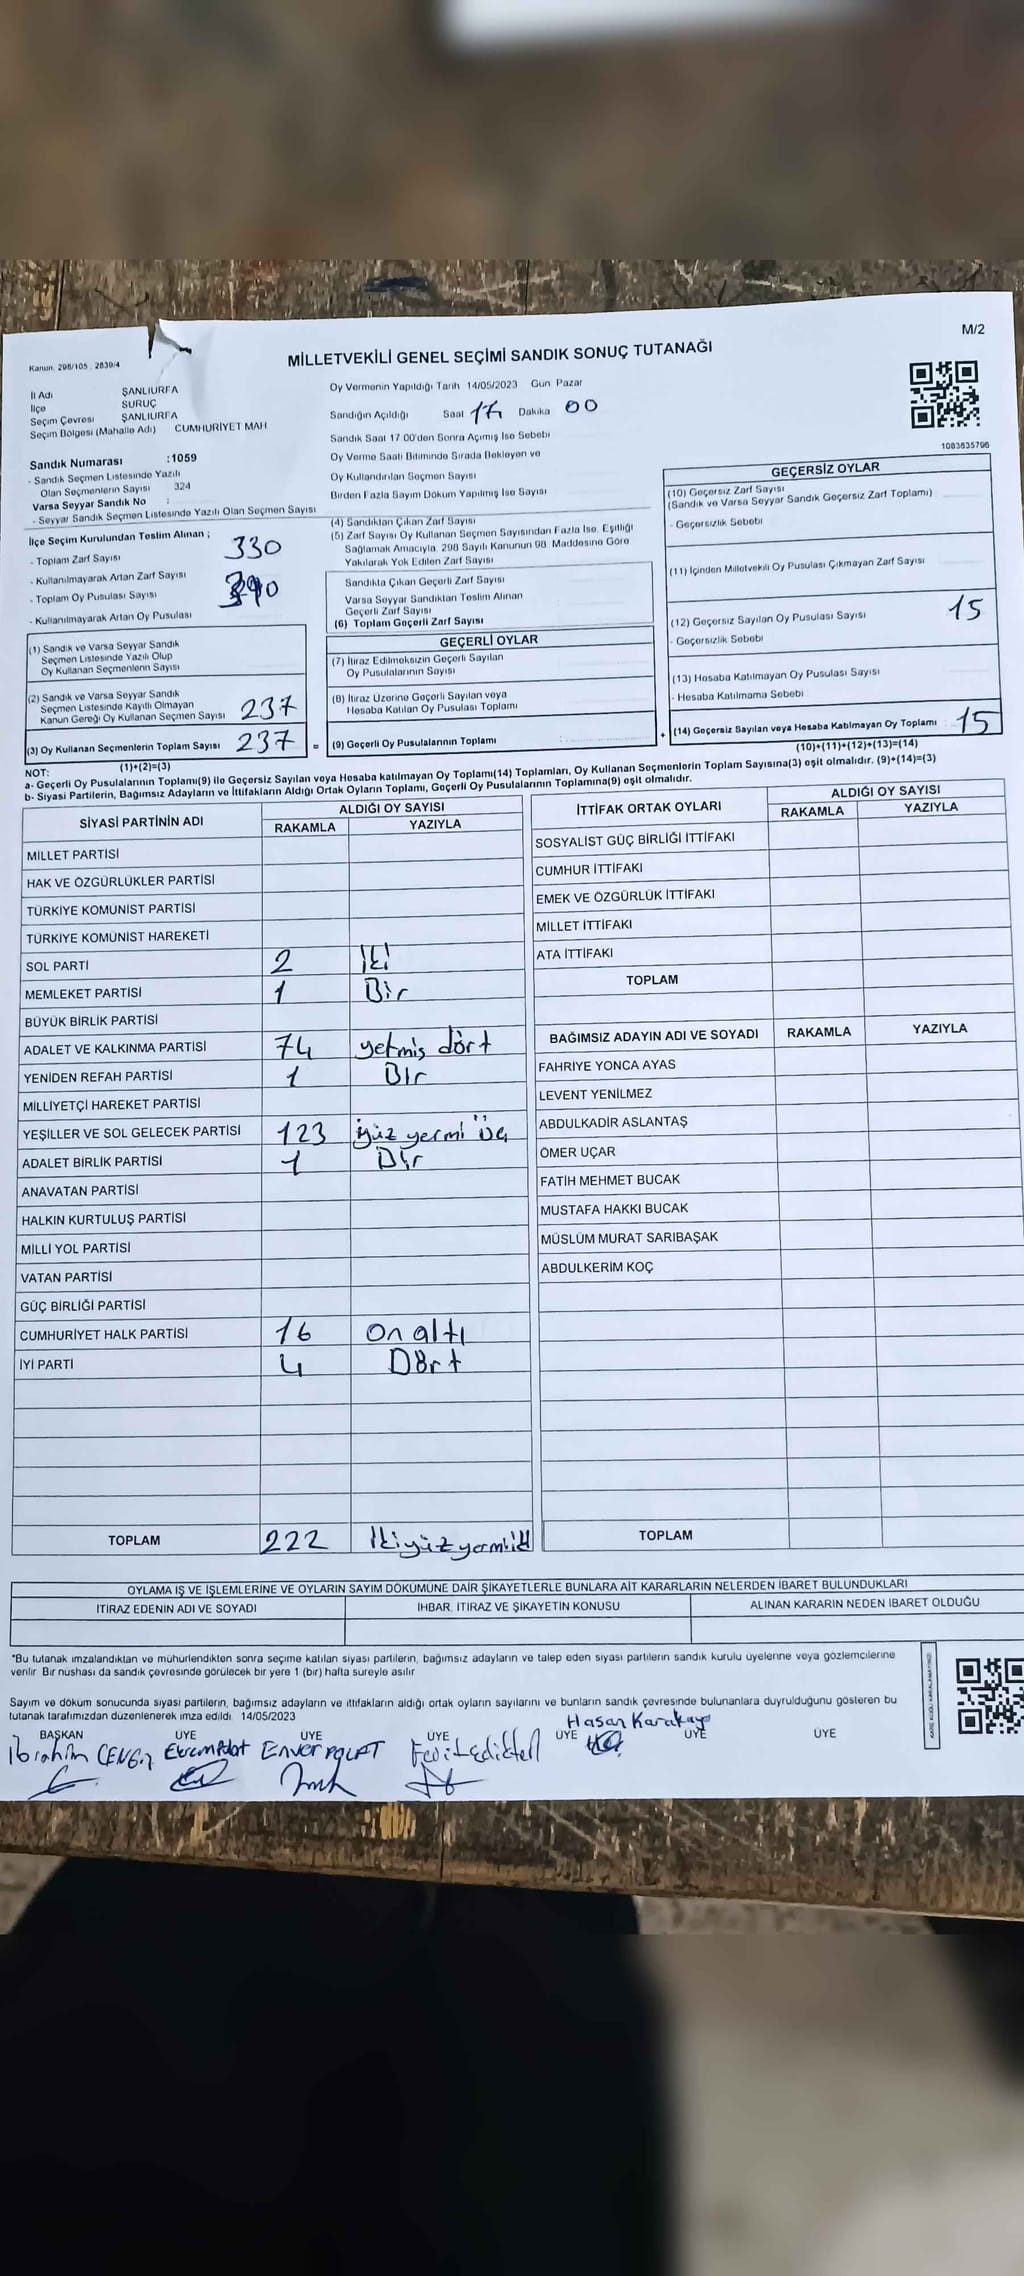 M/2
Kanun. 298/105 . 2839/4
MİLLETVEKİLİ GENEL SEÇİMİ SANDIK SONUÇ TUTANAĞI
İl Adı ŞANLIURFA
İlçe SURUÇ
Seçim Çevresi ŞANLIURFA
Seçim Bölgesi (Mahalle Adı) CUMHURİYET MAH
Sandık Numarası :1059
- Sandık Seçmen Listesinde Yazılı
Olan Seçmenlerin Sayısı 324
Varsa Seyyar Sandık No :
- Seyyar Sandık Seçmen Listesinde Yazılı Olan Seçmen Sayısı
İlçe Seçim Kurulundan Teslim Alınan ;
- Toplam Zarf Sayısı 330
- Kullanılmayarak Artan Zarf Sayısı
- Toplam Oy Pusulası Sayısı
- Kullanılmayarak Artan Oy Pusulası
(1) Sandık ve Varsa Seyyar Sandık
Seçmen Listesinde Yazılı Olup
Oy Kullanan Seçmenlerin Sayısı
(2) Sandık ve Varsa Seyyar Sandık
Seçmen Listesinde Kayıtlı Olmayan
Kanun Gereği Oy Kullanan Seçmen Sayısı 237
(3) Oy Kullanan Seçmenlerin Toplam Sayısı 237 =
(1)+(2)=(3)
Oy Vermenin Yapıldığı Tarih 14/05/2023 Gün Pazar
Sandığın Açıldığı Saat 17 Dakika 00
Sandık Saat 17 00'den Sonra Açımış İse Sebebi
Oy Verme Saati Bitiminde Sırada Bekleyen ve
Oy Kullandırılan Seçmen Sayısı
Birden Fazla Sayım Döküm Yapılmış İse Sayısı
(4) Sandıktan Çıkan Zarf Sayısı
(5) Zarf Sayısı Oy Kullanan Seçmen Sayısından Fazla İse, Eşitliği
Sağlamak Amacıyla, 298 Sayılı Kanunun 98. Maddesine Göre
Yakılarak Yok Edilen Zarf Sayısı
Sandıkta Çıkan Geçerli Zarf Sayısı
Varsa Seyyar Sandıktan Teslim Alınan
Geçerli Zarf Sayısı
(6) Toplam Geçerli Zarf Sayısı
GEÇERLİ OYLAR
(7) İtiraz Edilmeksizin Geçerli Sayılan
Oy Pusulasının Sayısı
(8) İtiraz Üzerine Geçerli Sayılan veya
Hesaba Katılan Oy Pusulası Toplamı
(9) Geçerli Oy Pusulalarının Toplamı : +
1083635796
GEÇERSİZ OYLAR
(10) Geçersiz Zarf Sayısı
(Sandık ve Varsa Seyyar Sandık Geçersiz Zarf Toplamı)
- Geçersizlik Sebebi
(11) İçinden Milletvekili Oy Pusulası Çıkmayan Zarf Sayısı
(12) Geçersiz Sayılan Oy Pusulası Sayısı 15
- Geçersizlik Sebebi
(13) Hesaba Katılmayan Oy Pusulası Sayısı
- Hesaba Katılmama Sebebi
(14) Geçersiz Sayılan veya Hesaba Katılmayan Oy Toplamı 15
(10)+(11)+(12)+(13)=(14)
NOT:
a- Geçerli Oy Pusulalarının Toplamı(9) ile Geçersiz Sayılan veya Hesaba katılmayan Oy Toplamı(14) Toplamları, Oy Kullanan Seçmenlerin Toplam Sayısına(3) eşit olmalıdır. (9)+(14)=(3)
b- Siyasi Partilerin, Bağımsız Adayların ve İttifakların Aldığı Ortak Oyların Toplamı, Geçerli Oy Pusulalarının Toplamına(9) eşit olmalıdır.
SİYASİ PARTİNİN ADI ALDIĞI OY SAYISI
RAKAMLA YAZIYLA
MİLLET PARTİSİ
HAK VE ÖZGÜRLÜKLER PARTİSİ
TÜRKİYE KOMÜNİST PARTİSİ
TÜRKİYE KOMÜNİST HAREKETİ
SOL PARTİ 2 İki
MEMLEKET PARTİSİ 1 Bir
BÜYÜK BİRLİK PARTİSİ
ADALET VE KALKINMA PARTİSİ 74 yetmiş dört
YENİDEN REFAH PARTİSİ 1 Bir
MİLLİYETÇİ HAREKET PARTİSİ
YEŞİLLER VE SOL GELECEK PARTİSİ 123 yüz yermi üç
ADALET BİRLİK PARTİSİ 1 Bir
ANAVATAN PARTİSİ
HALKIN KURTULUŞ PARTİSİ
MİLLİ YOL PARTİSİ
VATAN PARTİSİ
GÜÇ BİRLİĞİ PARTİSİ
CUMHURİYET HALK PARTİSİ 16 on altı
İYİ PARTİ 4 Dört
TOPLAM 222 İkiyüzyermiiki
İTTİFAK ORTAK OYLARI ALDIĞI OY SAYISI
RAKAMLA YAZIYLA
SOSYALİST GÜÇ BİRLİĞİ İTTİFAKI
CUMHUR İTTİFAKI
EMEK VE ÖZGÜRLÜK İTTİFAKI
MİLLET İTTİFAKI
ATA İTTİFAKI
TOPLAM
BAĞIMSIZ ADAYIN ADI VE SOYADI RAKAMLA YAZIYLA
FAHRİYE YONCA AYAS
LEVENT YENİLMEZ
ABDULKADİR ASLANTAŞ
ÖMER UÇAR
FATİH MEHMET BUCAK
MUSTAFA HAKKI BUCAK
MÜSLÜM MURAT SARIBAŞAK
ABDULKERİM KOÇ
TOPLAM
OYLAMA İŞ VE İŞLEMLERİNE VE OYLARIN SAYIM DÖKÜMÜNE DAİR ŞİKAYETLERLE BUNLARA AİT KARARLARIN NELERDEN İBARET BULUNDUKLARI
İTİRAZ EDENİN ADI VE SOYADI İHBAR, İTİRAZ VE ŞİKAYETİN KONUSU ALINAN KARARIN NEDEN İBARET OLDUĞU
*Bu tutanak imzalandıktan ve mühürlendikten sonra seçime katılan siyasi partilerin, bağımsız adayların ve talep eden siyasi partilerin sandık kurulu üyelerine veya gözlemcilerine
verilir Bir nüshası da sandık çevresinde görülecek bir yere 1 (bir) hafta süreyle asılır
Sayım ve döküm sonucunda siyasi partilerin, bağımsız adayların ve ittifakların aldığı ortak oyların sayılarını ve bunların sandık çevresinde bulunanlara duyrulduğunu gösteren bu
tutanak tarafımızdan düzenlenerek imza edildi. 14/05/2023
BAŞKAN ÜYE ÜYE ÜYE ÜYE ÜYE ÜYE
İbrahim CENGİZ Ekrem Polat Enver POLAT Hasan Karakay